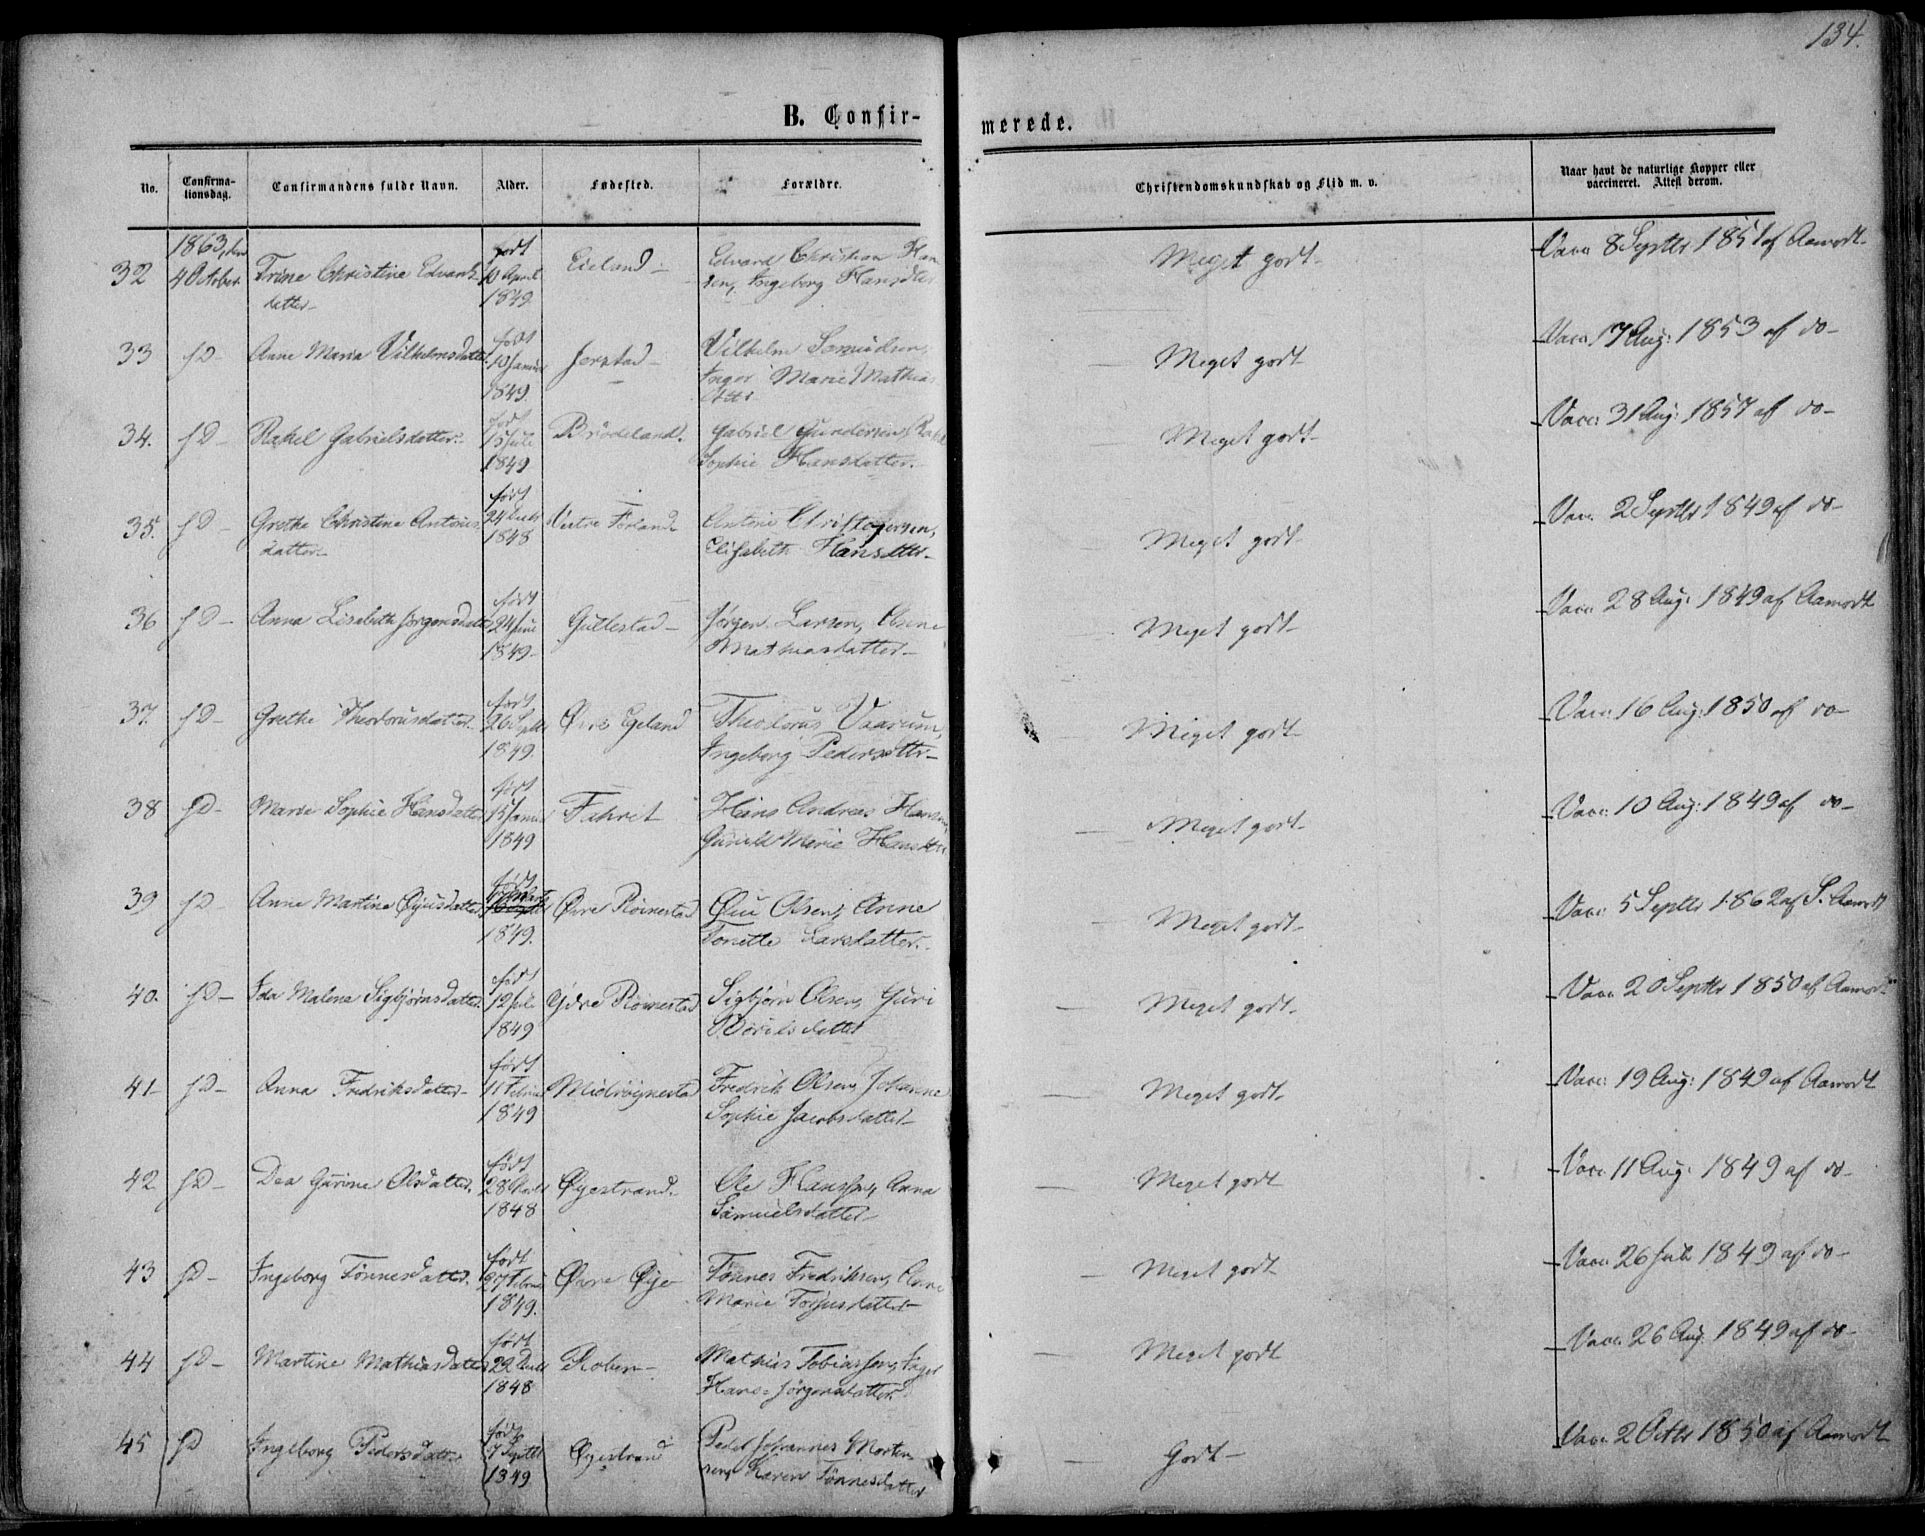 134.
B. Confir-
merede.
No.
Confirma-
tionsdag.
Confirmandens fulde Navn.
Alder.
Fødested.
Forældre.
Christendomskundskab og Flid m. v.
Naar havt de naturlige Kopper eller
vaccineret. Attest derom.
1863, den
32 4 October Trine Christine Edvards
datter
født
10 April
1849.
Eieland
Edvard Christian Han
sen, Ingeborg Hansdtr
Meget godt
Vacc 8 Septbr 1851 af Aamodt
33 Anne Maria Vilhelmsdatter
født
10 Januar
1849.
Jerstad
Vilhelm
Inger Marie Mathias
Meget godt
Vacc 17 Aug: 1853 af do
34. Rakel Gabrielsdatter
15 Juli
1849
Brødeland.
Gabriel Gundersen, Rakel
Sophie Hansdatter
Meget godt
Vacc: 31 Aug: 1857 af do
35. Grethe Christine Antonis
datter
født
1848
Vestre Førland
Antoni Christophersen,
Elisabeth Hansdtter
Meget godt
Vacc. 2 Septbr 1849 af do
36 Anna Lisabeth Jørgensdatter
født
24 Juni
1849
Gullestad
Jørgen Larsen, Anne
Mathiasdatter
Meget godt
Vacc 28 Aug: 1849 af Aamodt
37. Grethe Theodorusdatter
født
26 Septbr
1849.
Øvre Egeland
Theodorus
Ingeborg Pedersdtter
Meget godt
Vacc 16 Aug: 1850 af do
38 Marie Sophie Hansdatter
født
15 Januar
1849
Hans Andreas Hansen,
Gunild Marie Hansdtr
Meget godt
Vacc: 10 Aug: 1849 af do
39 Anne Martine Øyusdatter
født
1849.
Øvre Røinestad
Olsen, Anne
Tonette Larsdatter
Meget godt
Vacc: 5 Septbr 1862 af S. Aamodt
40. Ida Malena Sigbjørnsdatter
født
19 Juli
1849
Ydre Røinestad
Sigbjørn Olsen, Guri
Meget godt
Vacc 20 Septbr 1850 af Aamodt
41 Anna Fredriksdatter
født
11 Februar
1849
Midtrøynestad
Fredrik Olsen, Johanne
Sophie Jacobsdatter
Meget godt
Vacc: 19 Aug: 1849 af Aamodt
42 Dea Gurine Olsdatter
født
1848
Øyestrand.
Ole Hanssen, Anna
Samuelsdatter
Meget godt
Vacc. 11 Aug: 1849 af do
43 Ingeborg Tønnesdatter
født
27 Februar
1849.
Øvre Øye
Tønnes Fredriksen, Anne
Marie Torjusdatter
Meget godt
Vacc. 26 Juli 1849 af do
44 Martine Mathiasdatter
født
1848
Mathias Tobiassen, Inger
Hans-Jørgensdatter
Meget godt
Vacc. 26 Aug. 1849 af do
45 Ingeborg Pedersdatter
født
7 Septbr
1849
Øyestrand
Peder Johannes Morten
sen, Karen Tønnesdatter
Godt
Vacc 2 Octbr 1850 af Aamodt